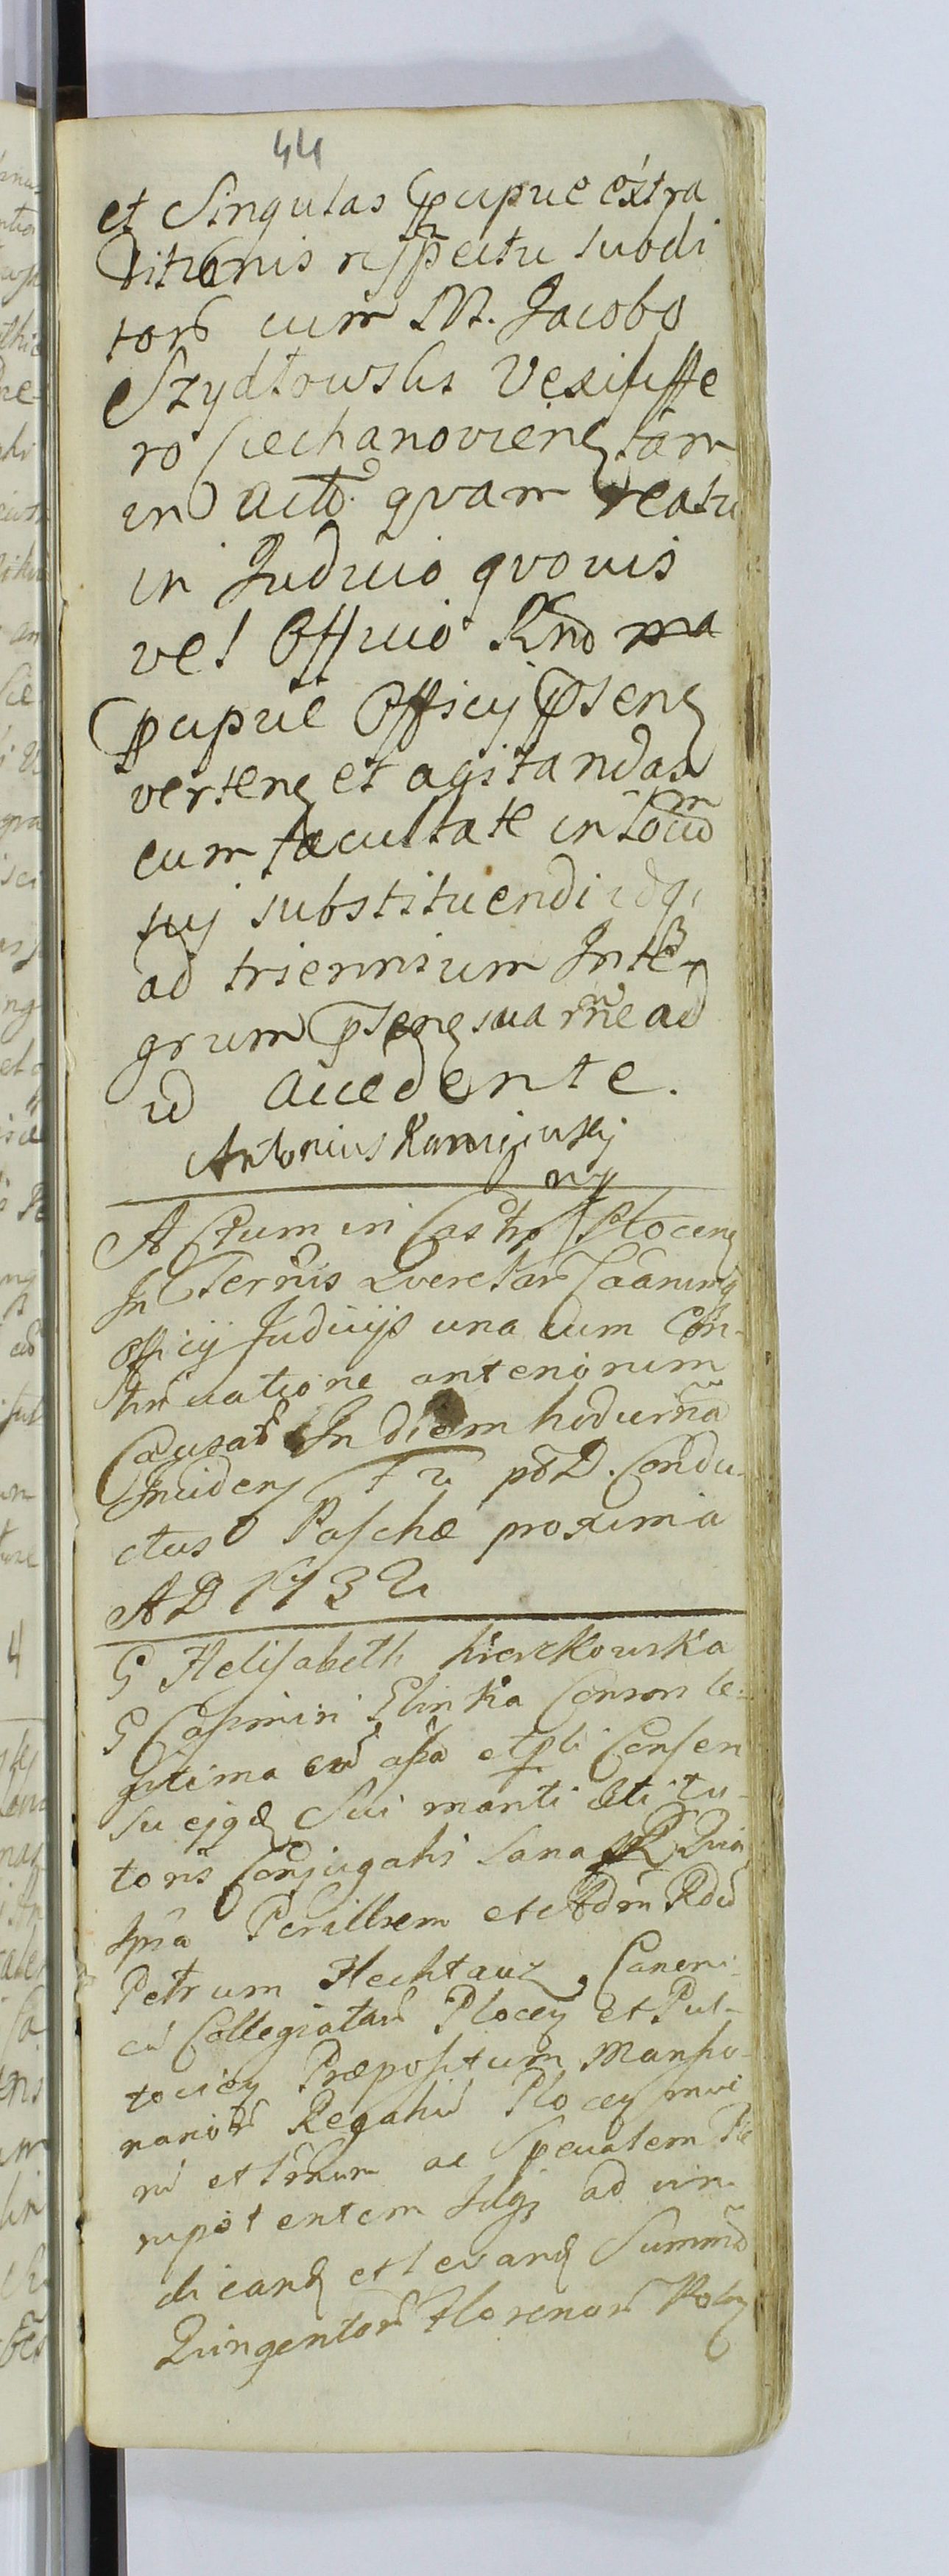 44
et Singulas ꝑcipue extra
ditionis respectu subdi
tor̃ cum M. Jacobo
Szydłowski Vexilliffe
ro Ciechanovien̄ tam
in acto. qvam reatu
in Judicio qvovis
vel Officio Rndo
ꝑcipue Officij p̄sen̄
verten̄ et agitandas
cum facultate in locū
sui substituendi idq;
ad triennium Inte-
grum p̄sen̄ sua m̄ne ad
id accedente.
Antonius
mp
Actum in Castro Plocen̄
In Terḿis Querelar̄
officij Judicijs una cum Con-
tinuatione anteriorum
Causar̄ In diem hodiernā
Inciden̄ F 2 pō D. Condu-
ctus Paschæ proxima
AD 1732
G Helisabeth kierzkowska
G Casimiri Glinka Conson le-
gitima cū assā et ꝑli Consen
su ejqd̄ Sui mariti uti tu-
toris Conjugalis Sana
Ipsa Perillrem et Adm̄ Rdū
Petrum Hechtauz, Canoni-
cū Collegiatar̄ Plocen̄ et Pul-
tovien̄ Præpositum Mansio-
narior̄ Regaliū Plocen̄
rū et ac Specialem Ple
nipotentem Idq; ad vin-
dicand̄ et levand̄ Summā
Quingentor̄ Florenor̄ Polon̄